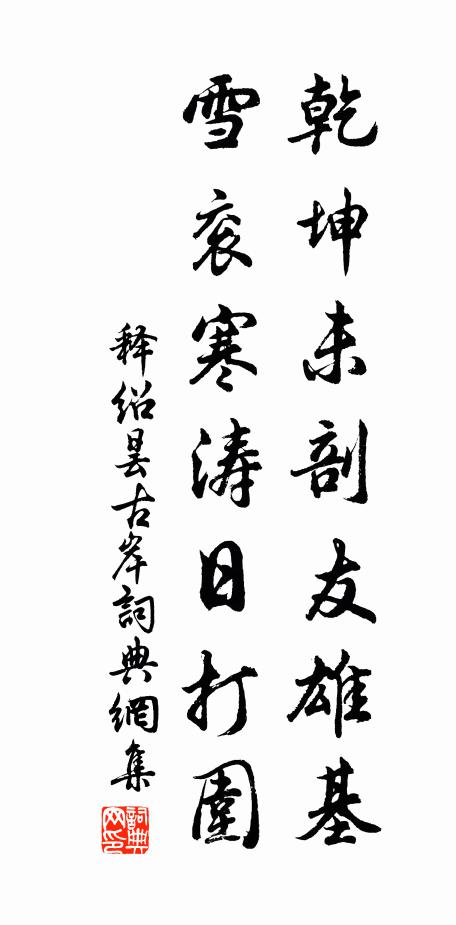 乾坤未剖友雄基
雪衮寒涛日打圍
释绍昙古岸詞典網集
詞典网印